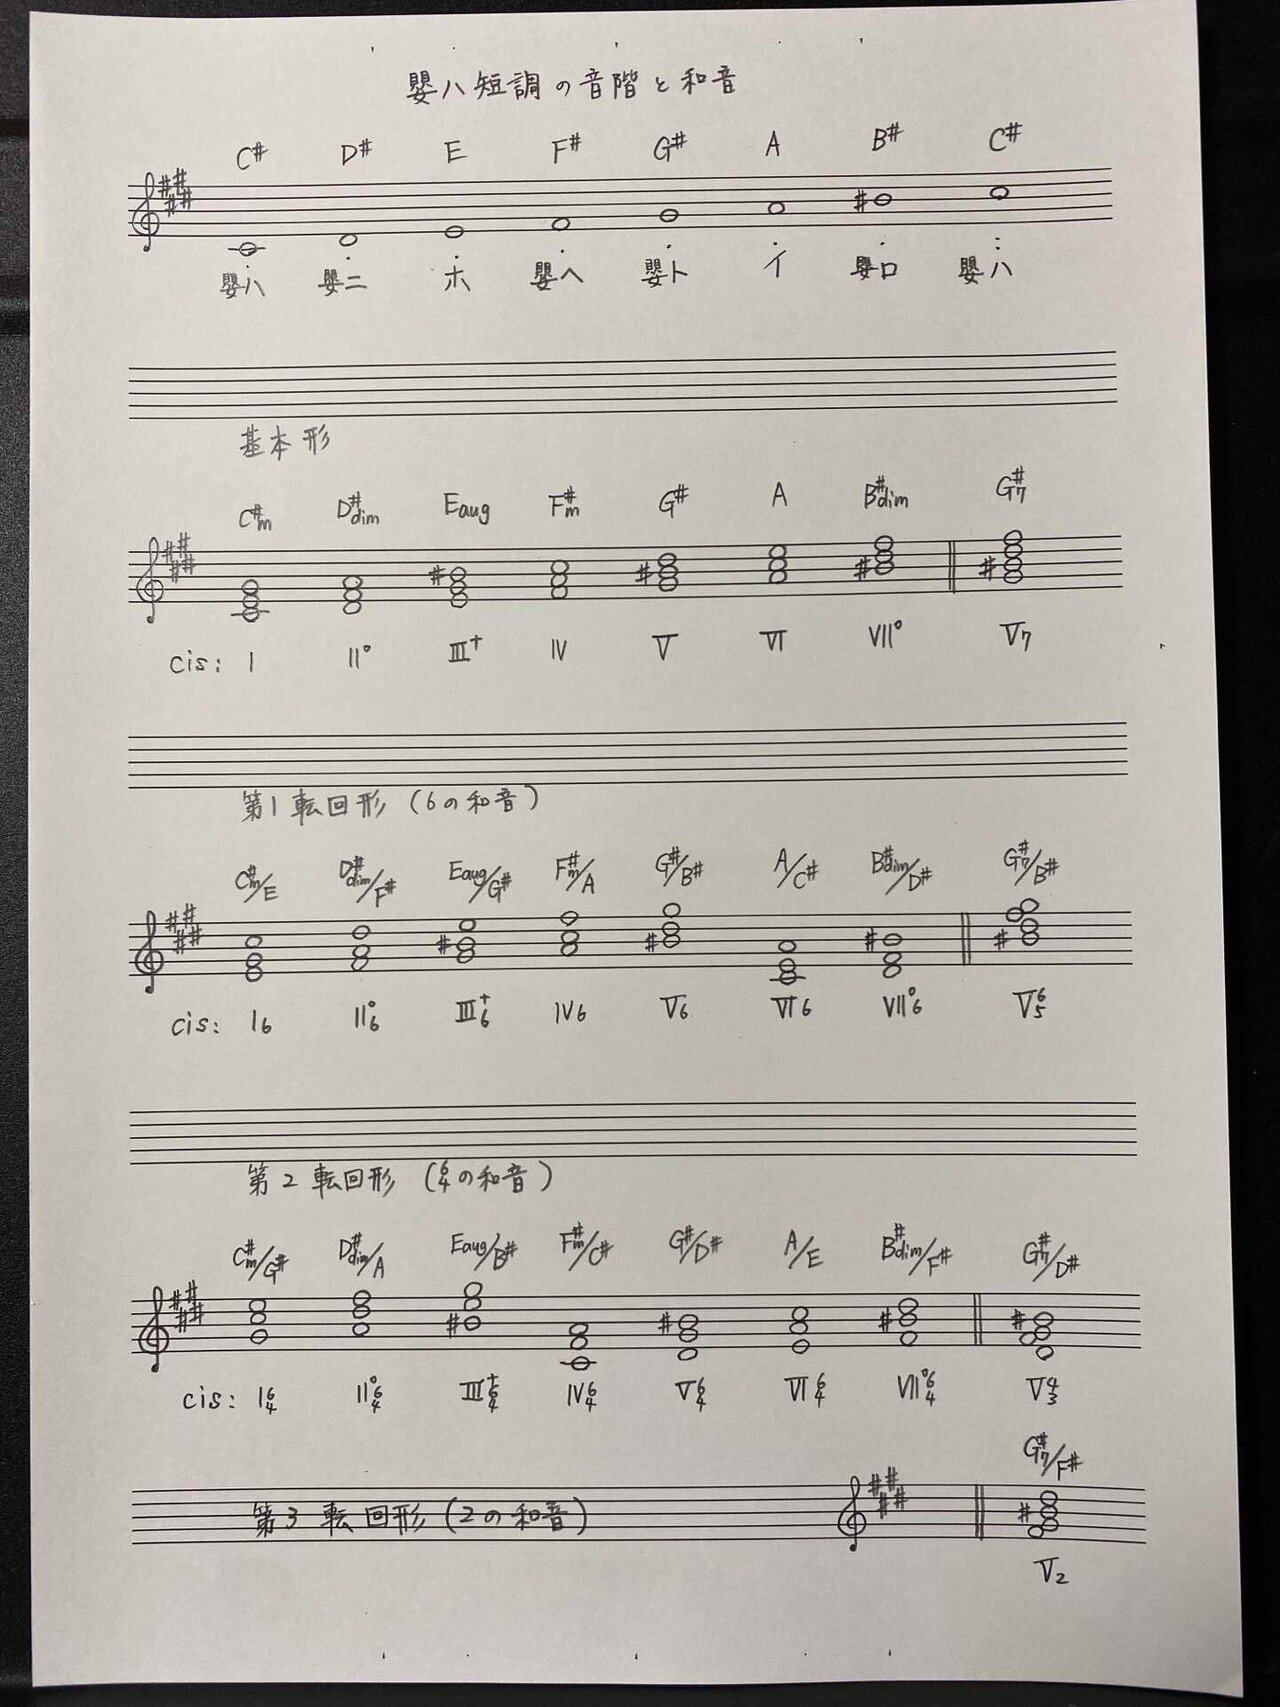 嬰ハ短調の音階と和音
C# D# E F# G# A B# C#
嬰ハ 嬰ニ ホ 嬰ヘ 嬰ト イ 嬰ロ 嬰ハ
基本形
C#m D#dim Eaug F#m G# A B#dim G#7
cis: I II° III+ IV V VI VII° V7
第1転回形 (6の和音)
C#m/E D#dim/F# Eaug/G# F#m/A G#/B# A/C# B#dim/D# G#7/B#
cis: I6 II°6 III+6 IV6 V6 VI6 VII°6 V65
第2転回形 (64の和音)
C#m/G# D#dim/A Eaug/B# F#m/C# G#/D# A/E B#dim/F# G#7/D#
cis: I64 II°64 III+64 IV64 V64 VI64 VII°64 V43
G#7/F#
第3転回形 (2の和音)
V2